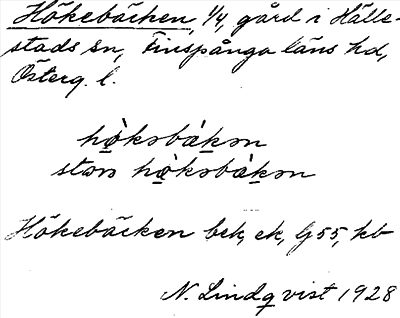 Hökebäcken, 1/4, gård i Hälle-
stads sn, Finspånga läns hd,
Österg. l.
hø̀kəbàkən
stɷrs hø̀kəbàkən
Hökebäcken bek, ek, G55, kb
N. Lindqvist 1928